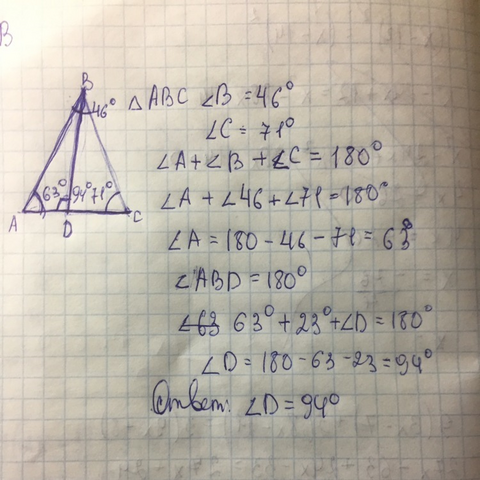 В
B
46°
63°
94°
71°
A
D
C
△ ABC ∠B = 46°
∠C = 71°
∠A + ∠B + ∠C = 180°
∠A + ∠46 + ∠71 = 180°
∠A = 180 - 46 - 71 = 63°
∠ABD = 180°
∠63 63° + 23° + ∠D = 180°
∠D = 180 - 63 - 23 = 94°
Ответ: ∠D = 94°